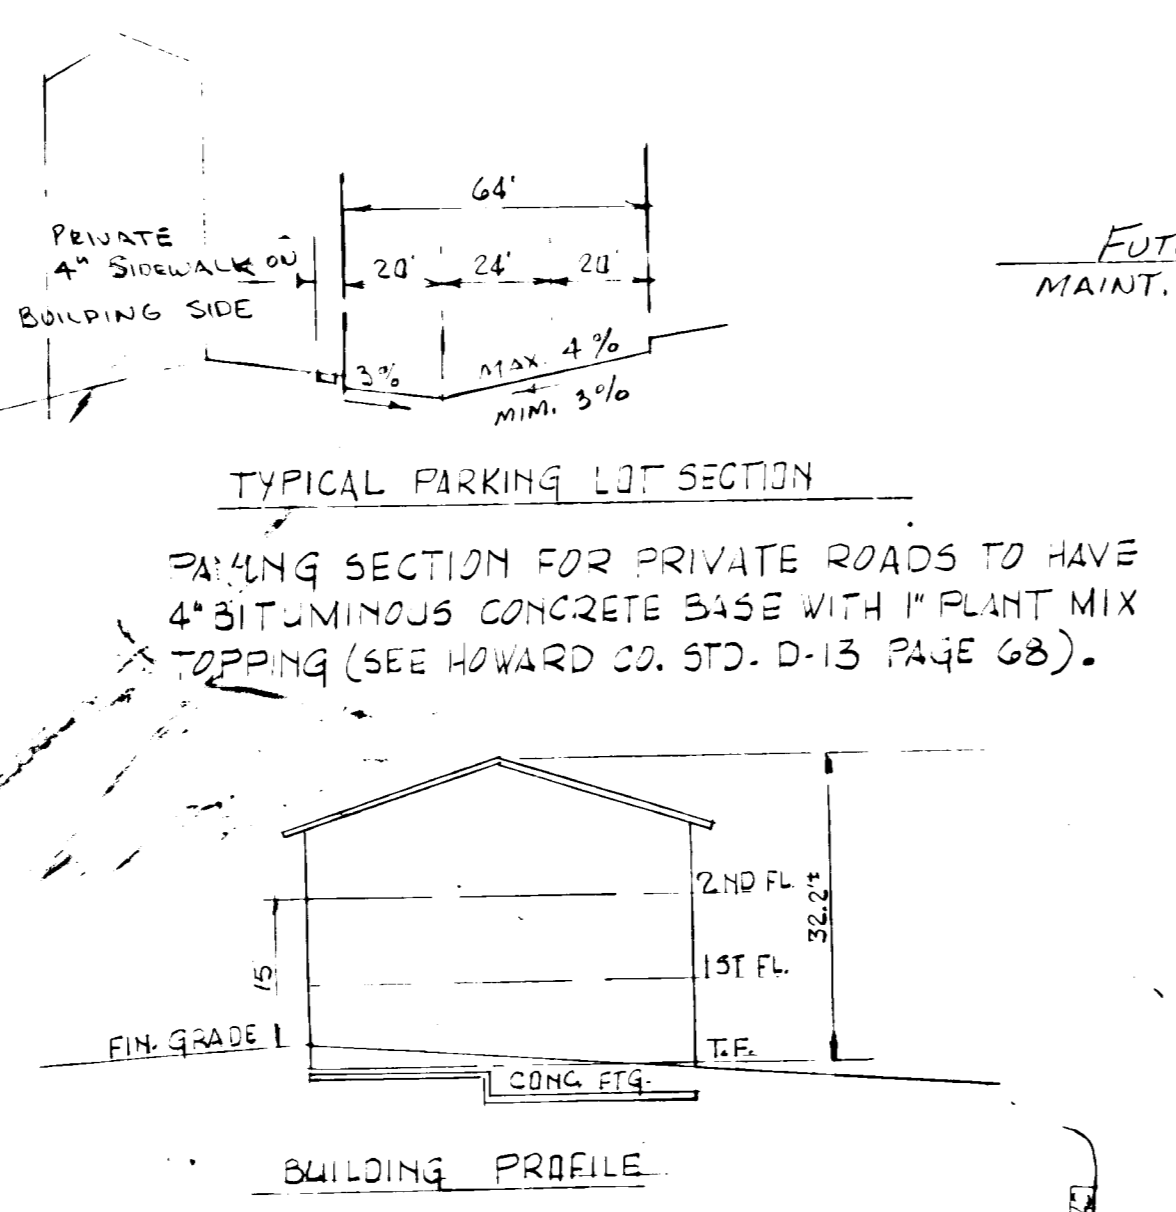 64'
PRIVATE
4" SIDEWALK ON
BUILDING SIDE
20' 24' 20'
3%
MAX. 4%
MIM. 3%
FUT
MAINT.
TYPICAL PARKING LOT SECTION
PAVING SECTION FOR PRIVATE ROADS TO HAVE
4" BITUMINOUS CONCRETE BASE WITH 1" PLANT MIX
TOPPING (SEE HOWARD CO. STD. D-13 PAGE 68).
2ND FL.
32.2'±
15
1ST FL.
FIN. GRADE
T.F.
CONC. FTG.
BUILDING PROFILE